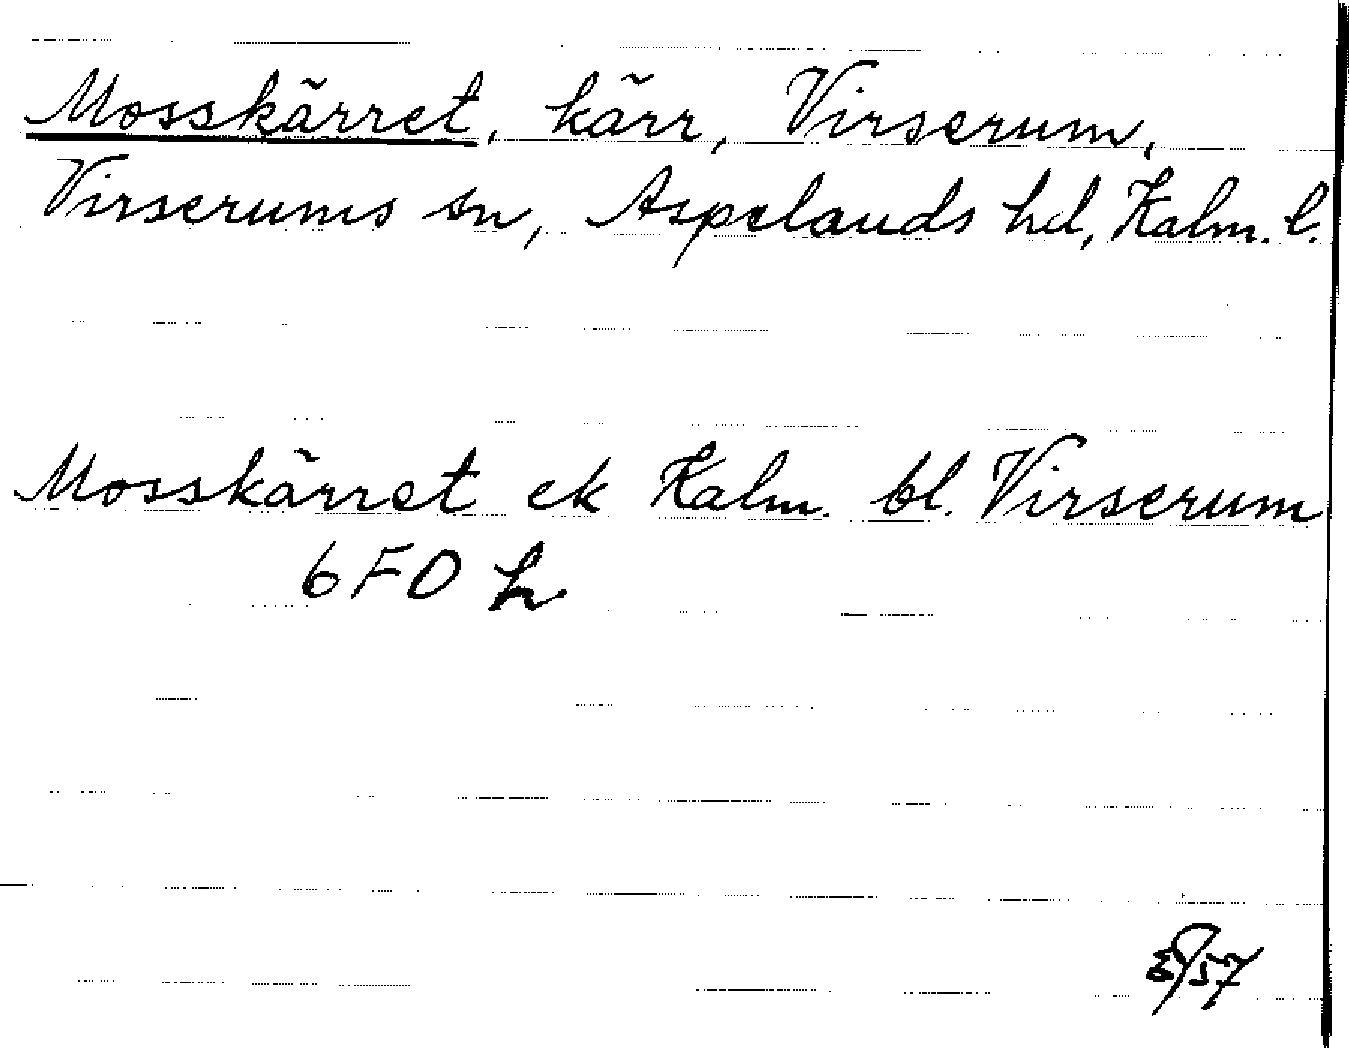 Mosskärret, kärr, Virserum,
Virserums sn, Aspelands hd, Kalm. l.
Mosskärret ek Kalm. bl. Virserum
6F0 h